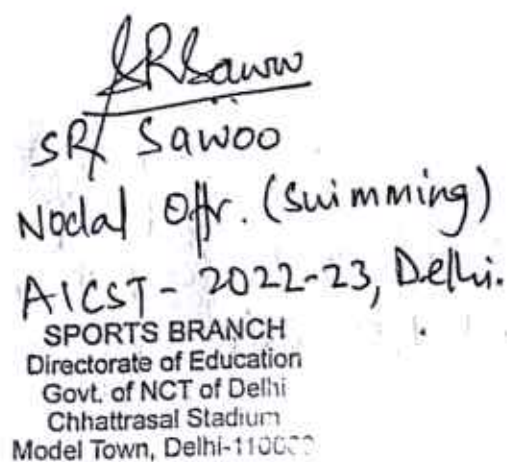 SRSawoo
SR Sawoo
Nodal Offr. (Swimming)
AICST - 2022-23, Delhi.
SPORTS BRANCH
Directorate of Education
Govt. of NCT of Delhi
Chhattrasal Stadium
Model Town,